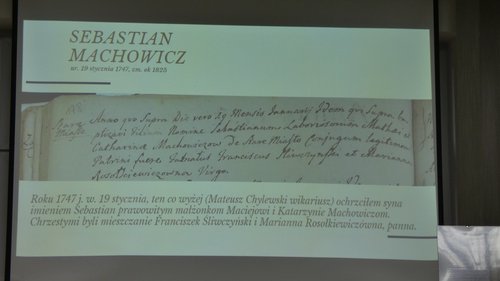 SEBASTIAN
MACHOWICZ
ur. 19 stycznia 1747, zm. ok 1825
Anno quo Supra Die vero 29 Mensis Januarii Idem qui Supra
Nomine Sebastianum Laboriosorum
Catharina Machowiczow de Nowe Miasto Conjugum Legitimor
Patrini fuere Franciscus et Marianna
Rosolkiewiczowna Virgo
Roku 1747 j. w. 19 stycznia, ten co wyżej (Mateusz Chylewski wikariusz) ochrzciłem syna
imieniem Sebastian prawowitym małżonkom Maciejowi i Katarzynie Machowiczom.
Chrzestymi byli mieszczanie Franciszek Śliwczyński i Marianna Rosołkiewiczówna, panna.